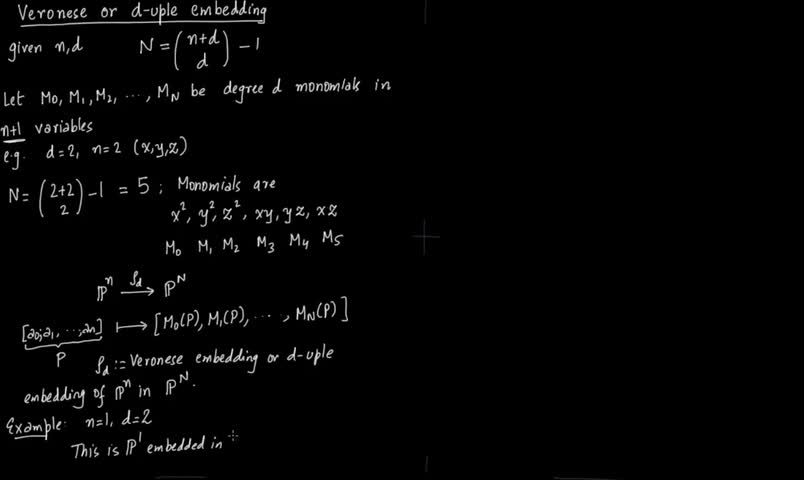 Veronese or d-uple embedding
given n,d N = (n+d d) - 1
Let M0, M1, M2, ..., MN be degree d monomials in
n+1 variables
e.g. d=2, n=2 (x,y,z)
N = (2+2 2) - 1 = 5 ; Monomials are
x², y², z², xy, yz, xz
M0 M1 M2 M3 M4 M5
ℙⁿ —ρd→ ℙᴺ
[a0,a1, ..., an] ↦ [M0(P), M1(P), ..., MN(P)]
P
ρd := Veronese embedding or d-uple
embedding of ℙⁿ in ℙᴺ.
Example: n=1, d=2
This is ℙ¹ embedded in